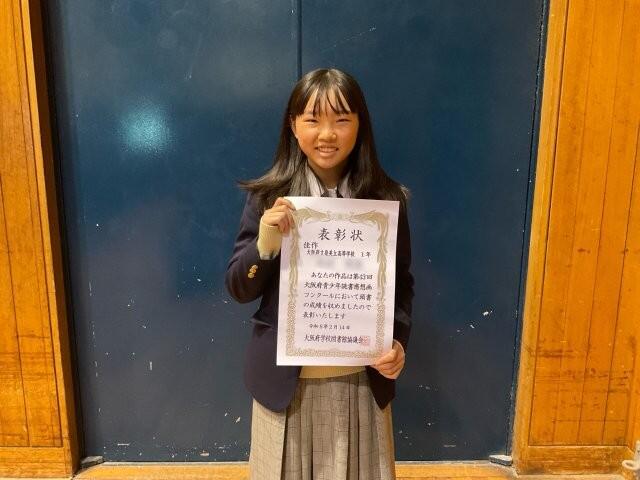 表彰状
佳作
大阪府立港南造形高等学校 1年
あなたの作品は第43回
大阪府青少年読書感想画
コンクールにおいて頭書
の成績を収めましたので
表彰いたします
令和6年2月14日
大阪府学校図書館協議会